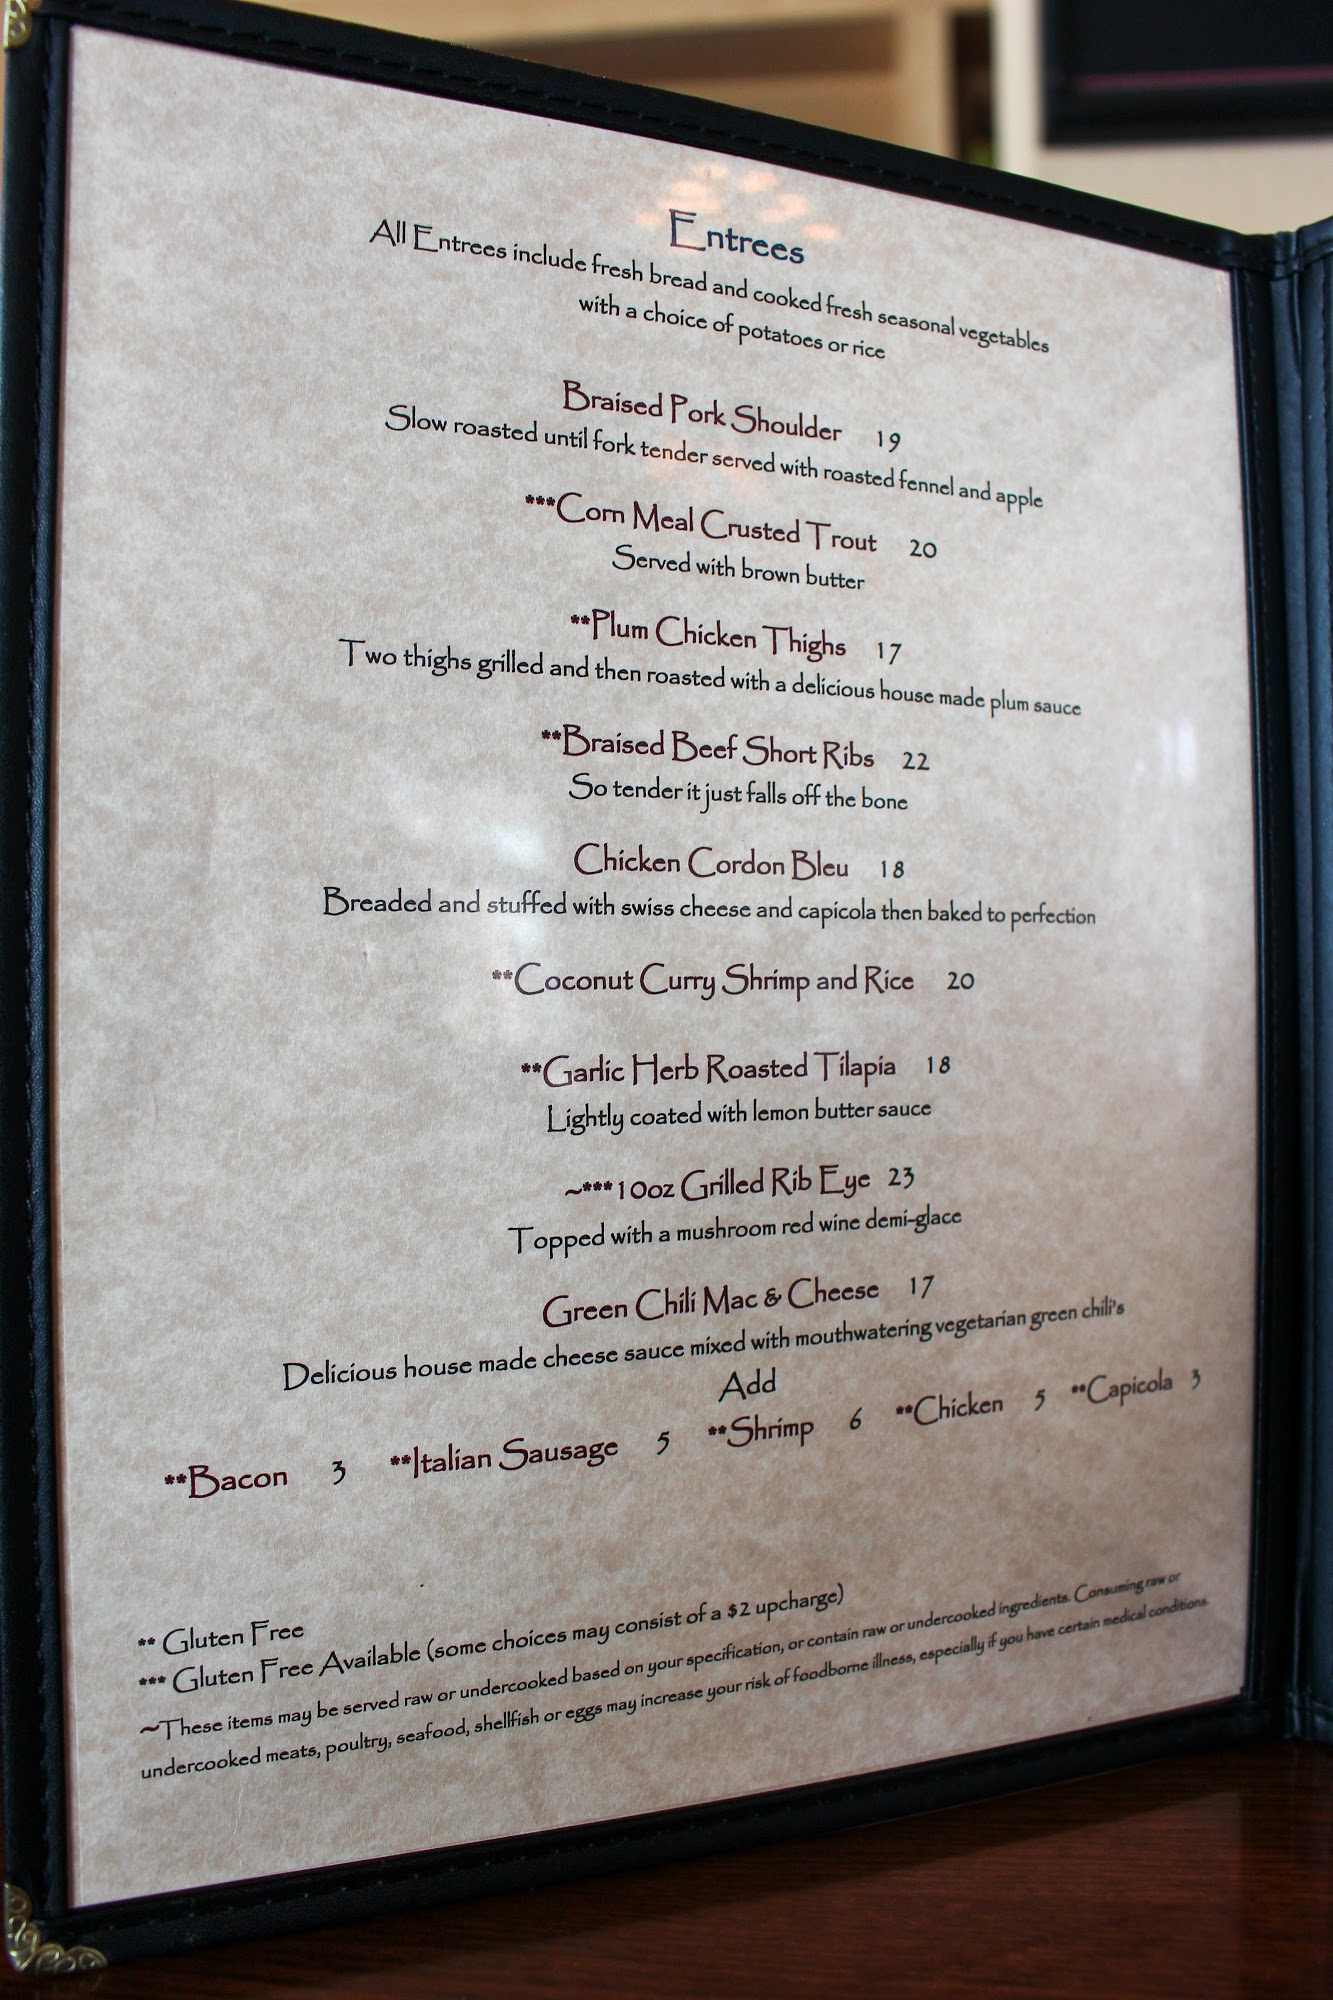 Entrees
All Entrees include fresh bread and cooked fresh seasonal vegetables
with a choice of potatoes or rice
Braised Pork Shoulder 19
Slow roasted until fork tender served with roasted fennel and apple
***Corn Meal Crusted Trout 20
Served with brown butter
**Plum Chicken Thighs 17
Two thighs grilled and then roasted with a delicious house made plum sauce
**Braised Beef Short Ribs 22
So tender it just falls off the bone
Chicken Cordon Bleu 18
Breaded and stuffed with swiss cheese and capicola then baked to perfection
**Coconut Curry Shrimp and Rice 20
**Garlic Herb Roasted Tilapia 18
Lightly coated with lemon butter sauce
~***10oz Grilled Rib Eye 23
Topped with a mushroom red wine demi-glace
Green Chili Mac & Cheese 17
Delicious house made cheese sauce mixed with mouthwatering vegetarian green chili's
Add
**Bacon 3 **Italian Sausage 5 **Shrimp 6 **Chicken 5 **Capicola 3
** Gluten Free
*** Gluten Free Available (some choices may consist of a $2 upcharge)
~These items may be served raw or undercooked based on your specification, or contain raw or undercooked ingredients. Consuming raw or
undercooked meats, poultry, seafood, shellfish or eggs may increase your risk of foodborne illness, especially if you have certain medical conditions.